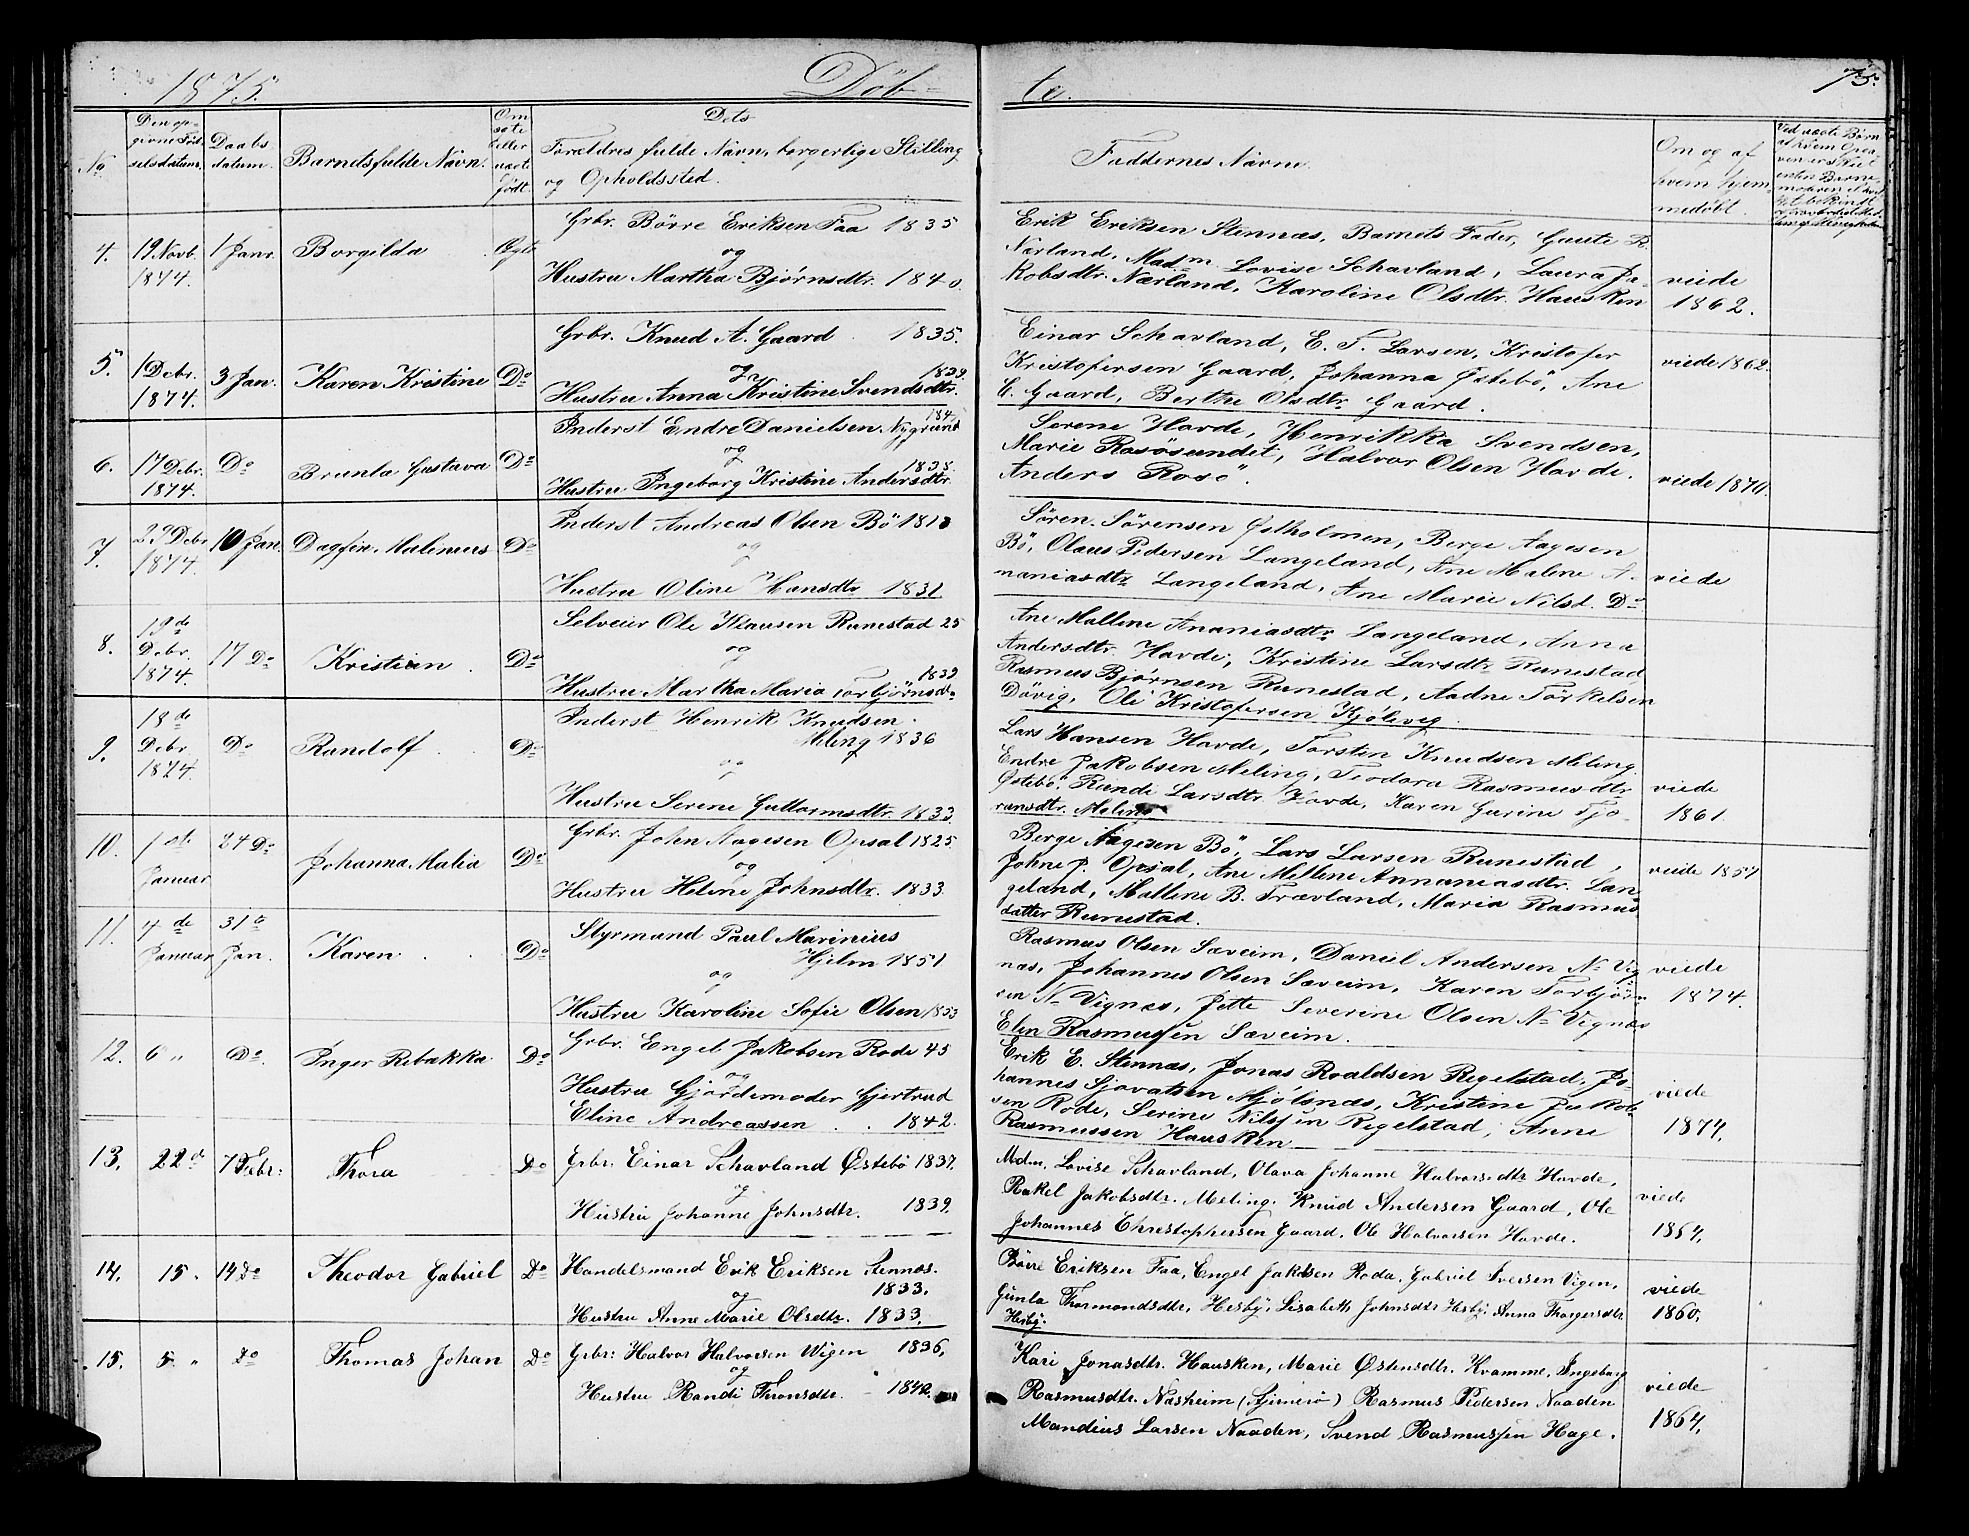 1875.
Döb-
te.
75.
No
Den op-
givne Föd-
selsdatum.
Daabs
datum.
Barnets fulde Navn.
Om
ægte
eller
uægte
födt.
Dets
Forældres fulde Navn, borgerlige Stilling
og Opholdssted.
Faddernes Navne.
Om og af
hvem hjem-
medöbt.
4.
19 Novb.
1874.
1 Janr.
Borgilda
Ægte
Grbr. Börre Eriksen Faa 1835
og
Hustru Martha Bjørnsdtr. 1840.
Erik Eriksen Stennæs, Barnets Fader, Gaute R.
Nærland, Madm. Lovise Schavland, Laura Ja-
kobsdtr. Nærland, Karoline Olsdtr. Hausken
viede
1862.
5.
1 Debr.
1874.
3 Jan.
Karen Kristine
Do
Grbr. Knud A. Gaard 1835.
og
1839.
Hustru Anna Kristine Svendsdtr.
Einar Schavland, E. T. Larsen, Kristofer
Kristofersen Gaard, Johanna Östebö, Ane
E. Gaard, Berthe Olsdtr. Gaard.
viede 1862.
6.
17 Debr.
1874.
Do
Brunla Gustava
Do
Inderst Endre Danielsen Nygrund
og
1835.
Hustru Ingeborg Kristine Andersdtr.
Serene Havde, Henrikka Svendsen,
Marie Rosösundet, Halvor Olsen Havde.
Anders Rosö.
viede 1870.
7.
29 Debr
1874.
10 Jan.
Dagfin Malinius
Do
Inderst Andreas Olsen Bö
og
Hustru Oline Hansdtr 1831
Sören Sörensen Östholmen, Berge Aagesen
Bö, Olaus Pedersen Langeland, Ane Malene A-
naniasdtr Langeland, Ane Marie Nilsd. Do
viede
8.
19de
Debr.
1874.
17 Do
Kristian
Do
Selveier Ole Klausen Runestad 25
og
1832
Hustru Martha Maria Torbjörnsd.
Ane Mallene Ananiasdtr Langeland, Anna
Andersdtr. Havde, Kristine Larsdtr Runestad
Rasmus Bjørnsen Runestad, Aadne Torkelsen
Dövig, Ole Kristofersen Kjölevig.
9.
18de
Debr
1874.
Do
Randolf
Do
Inderst Henrik Knudsen
Meling 1836
og
Hustru Serene Guttormsdtr. 1833
Lars Hansen Havde, Torsten Knudsen Meling.
Endre Jakobsen Meling, Teodora Rasmusdtr
Östebö, Rande Larsdtr. Havde, Karen Gurine Tjo-
ransdtr. Meling
viede
1861.
10.
1ste
Januar
24 Do
Johanna Malia
Do
Grbr. John Aagesen Opsal 1825
og
Hustru Helene Johnsdtr. 1833
Berge Aagesen Bö, Lars Larsen Runestad,
Johne J. Opsal, Ane Mellene Annaniasdtr. Lan-
geland, Mallene B. Trævland, Maria Rasmus
datter Runestad.
viede 1857
11.
4de
Januar
31te
Jan.
Karen
Do
Styrmand Paul Marinius
Hjelm 1851
og
Hustru Karoline Sofie Olsen 1853
Rasmus Olsen Sæveim, Daniel Andersen N. Vig-
næs, Johannes Olsen Sæveim, Karen Torbjörn-
sen N. Vignæs, Jette Severine Olsen N. Vignæs
Elen Rasmussen Sæveim.
viede
1874.
12.
6 "
Do.
Inger Rebakka
Do
Grbr. Engel Jakobsen Rode 45
og
Hustru Gjordemoder Gjertrud
Eline Andreassen 1842.
Erik E. Stennæs, Jonas Roaldsen Regelstad, Jo-
hannes Sjovatsen Mjölsnæs, Kristine Jakob-
sen Rode, Serine Nilssen Regelstad, Anne
Rasmussen Hausken
viede
1874.
13.
22de
7 Febr:
Thora
Do
Grbr. Einar Schavland Østebö 1837.
og
Hustru Johanne Johnsdtr. 1839.
Mdm. Lovise Schavland, Olava Johanne Halvorsdtr Havde,
Rakel Jakobsdtr. Meling. Knud Andersen Gaard, Ole
Johannes Christophersen Gaard. Ole Halvorsen Havde.
viede
1864.
14.
15.
14 Do
Theodor Gabriel
Do
Handelsmand Erik Eriksen Stennæs.
1833.
og
Hustru Anne Marie Olsdtr. 1833.
Börre Eriksen Faa, Engel Jakobsen Roda, Gabriel Iversen Vigen,
Gunla Thormondsdtr, Hesby, Lisabeth Johnsdtr Hesby, Anna Thorgersdtr
Hesby.
viede
1860.
15.
5 "
Do
Thomas Johan
Do
Grbr: Halvor Halvorsen Wigen 1836,
og
Hustru Randi Thonsdtr. 1842.
Kari Jonasdtr. Hausken, Marie Østensdtr. Kvamme, Ingeborg
Rasmusdtr. Næsheim (Stjernerö) Rasmus Pedersen Naaden
Mandius Larsen Naaden, Svend Rasmussen Hage.
viede
1864.